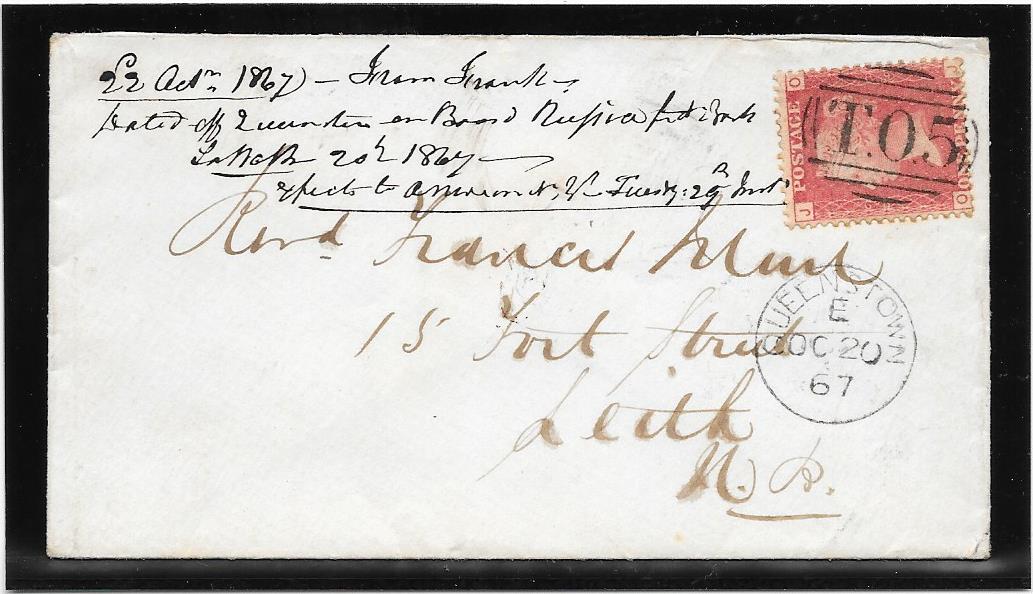 22 Octr 1867 – From Frank –
Dated off Queenstown on Board Russia for N York
Sabbath 20th 1867 –
expects to arrive on N. Yk Tuesdy: 29th Inst
Revd Francis Muir
15 Fort Street
Leith
N. B.
J O
POSTAGE
ONE PENNY
O J
T.05
QUEENSTOWN
E
OC 20
67